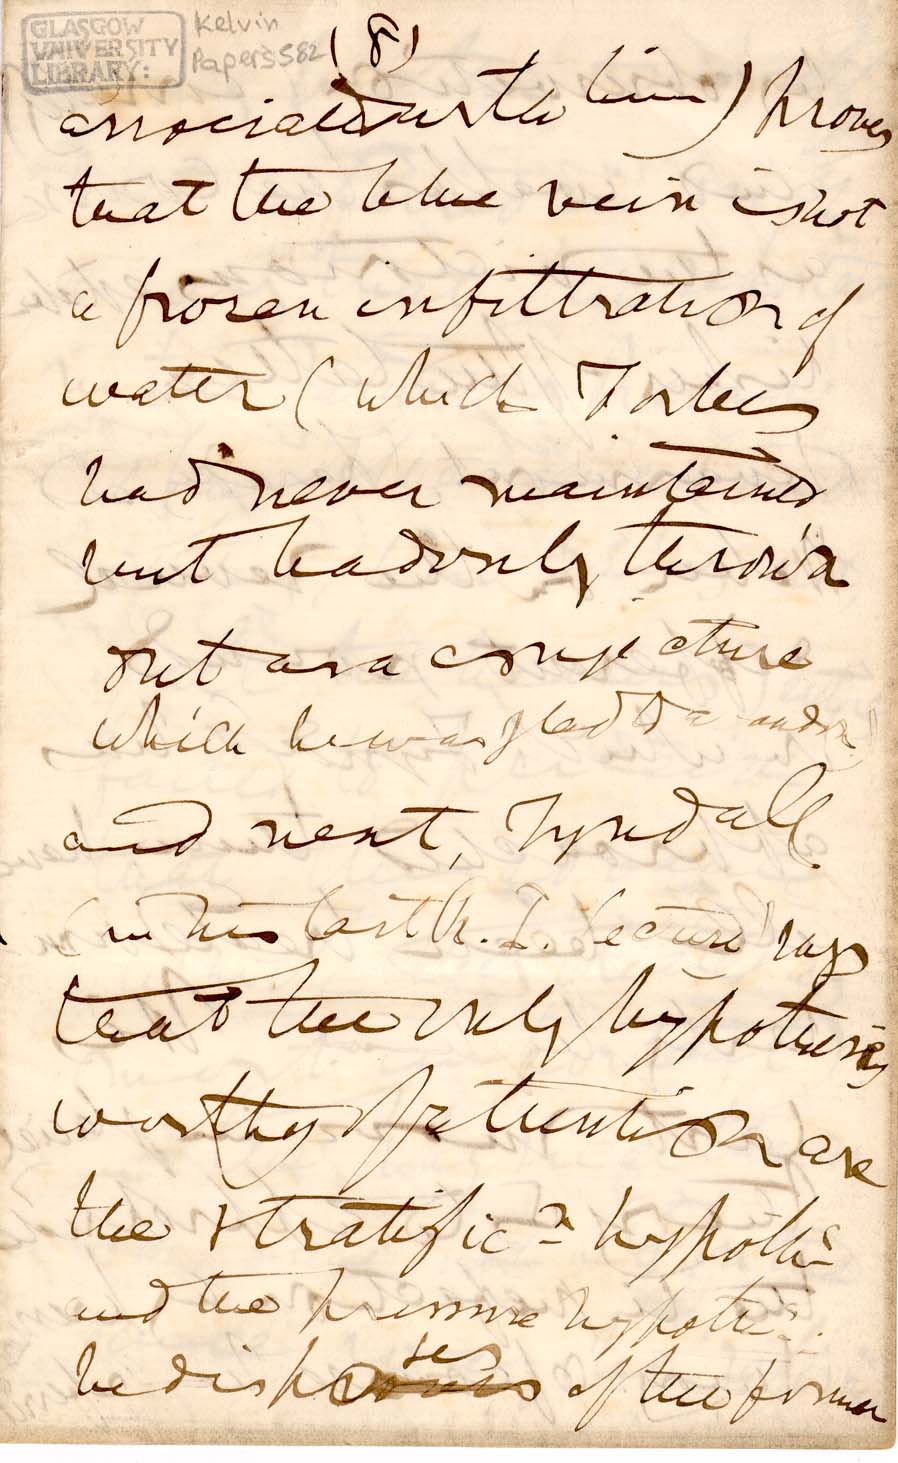 GLASGOW
UNIVERSITY
LIBRARY:
Kelvin
Papers S82
(8)
associated with him) proves
that the blue vein is not
a frozen infiltration of
water (which Forbes
had never maintained
but had only thrown
out as a conjecture
which he was glad to abandon)
and next, Tyndall
(in his last R. I. lecture) says
that the only hypotheses
worthy of attention are
the stratific<sup>n</sup> hypoth<sup>s</sup>
and the pressure hypothe<sup>s</sup>.
ses
he disproves of the former